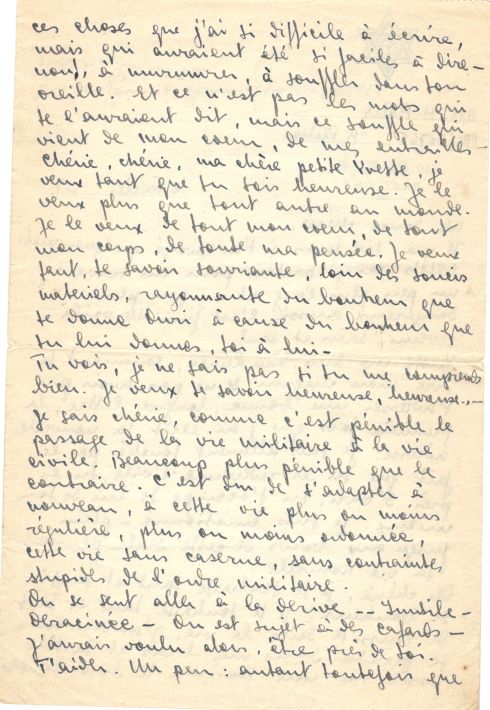 ces choses que j'ai si difficile à écrire,
mais qui auraient été si faciles à dire -
non!, à murmurer, à souffler dans ton
oreille. Et ce n'est pas les mots qui
te l'auraient dit, mais ce souffle qui
vient de mon coeur, de mes entrailles -
chérie, chérie, ma chère petite Yvette, je
veux tant que tu sois heureuse. Je le
veux plus que tout autre au monde.
Je le veux de tout mon coeur, de tout
mon corps, de toute ma pensée. Je veux
tant, te savoir souriante, loin des soucis
matériels, rayonnante du bonheur que
te donne Ouri à cause du bonheur que
tu lui donnes, toi à lui -
Tu vois, je ne sais pas si tu me comprends
bien. Je veux te savoir heureuse, heureuse..-
Je sais chérie, comme c'est pénible le
passage de la vie militaire à la vie
civile. Beaucoup plus pénible que le
contraire. C'est dur de s'adapter à
nouveau, à cette vie plus ou moins
régulière, plus ou moins ordonnée,
cette vie sans caserne, sans contraintes
stupides de l'ordre militaire.
On se sent aller à la dérive -- Inutile -
deracinée - On est sujet à des cafards -
J'aurais voulu alors, être près de toi.
T'aider. Un peu : autant toutefois que